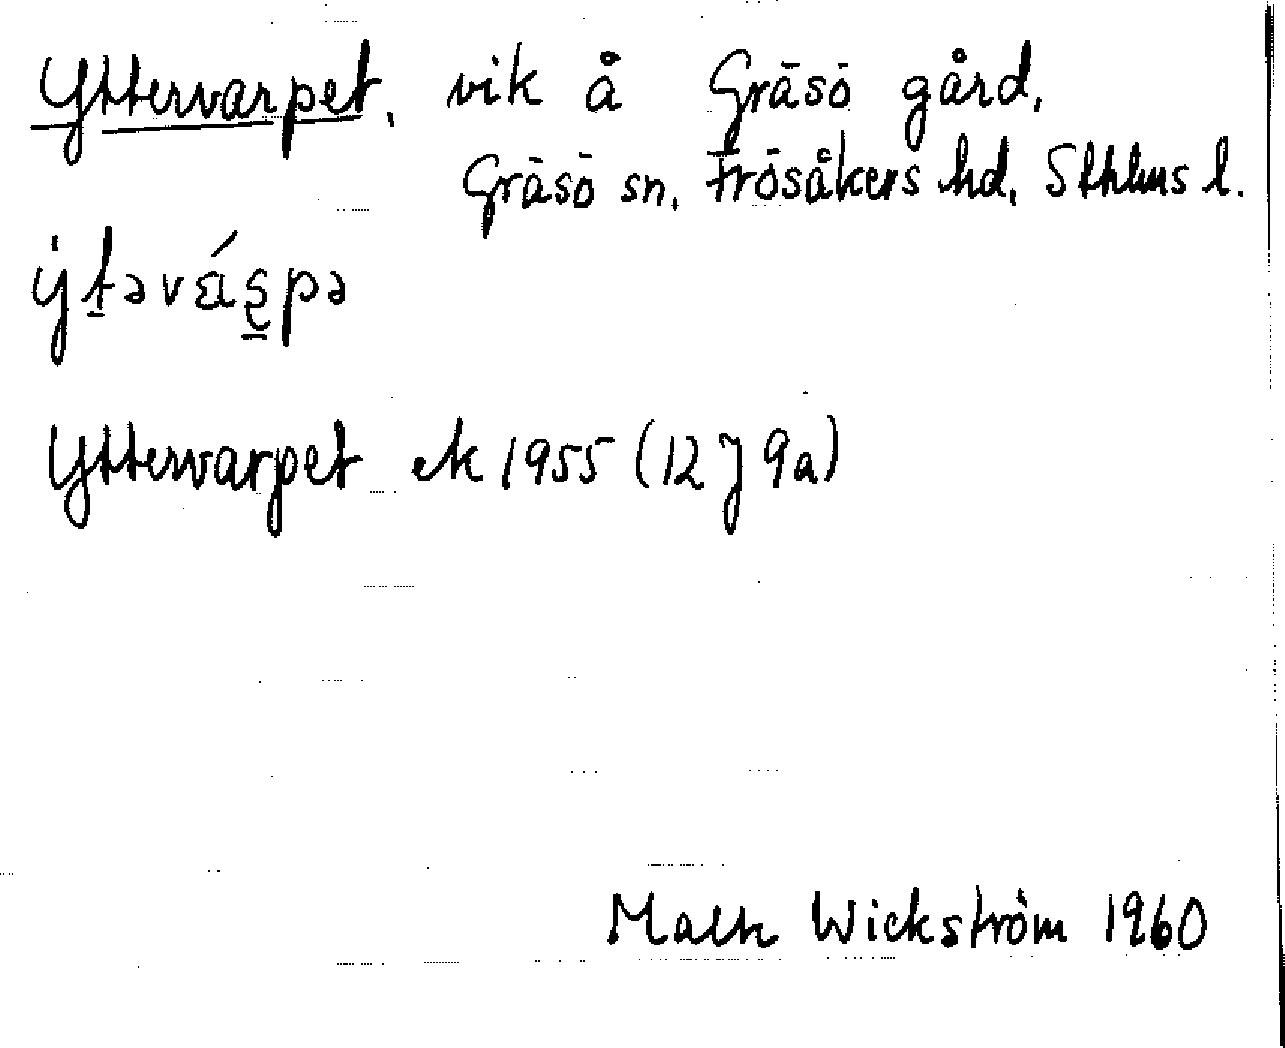 Yttervarpet, vik å Gräsö gård,
Gräsö sn, Frösåkers hd, Sthlms l.
Yttervarpet ek 1955 (12 J 9a)
Wickström 1960